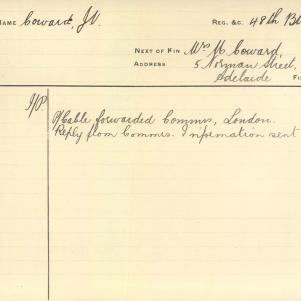 NAME Coward, J.V. REG. &C. 48th B
NEXT OF KIN Mrs M. Coward,
ADDRESS 5 Norman Street,
Adelaide FI
Cable forwarded Commrs, London.
Reply from Commrs. Information sent